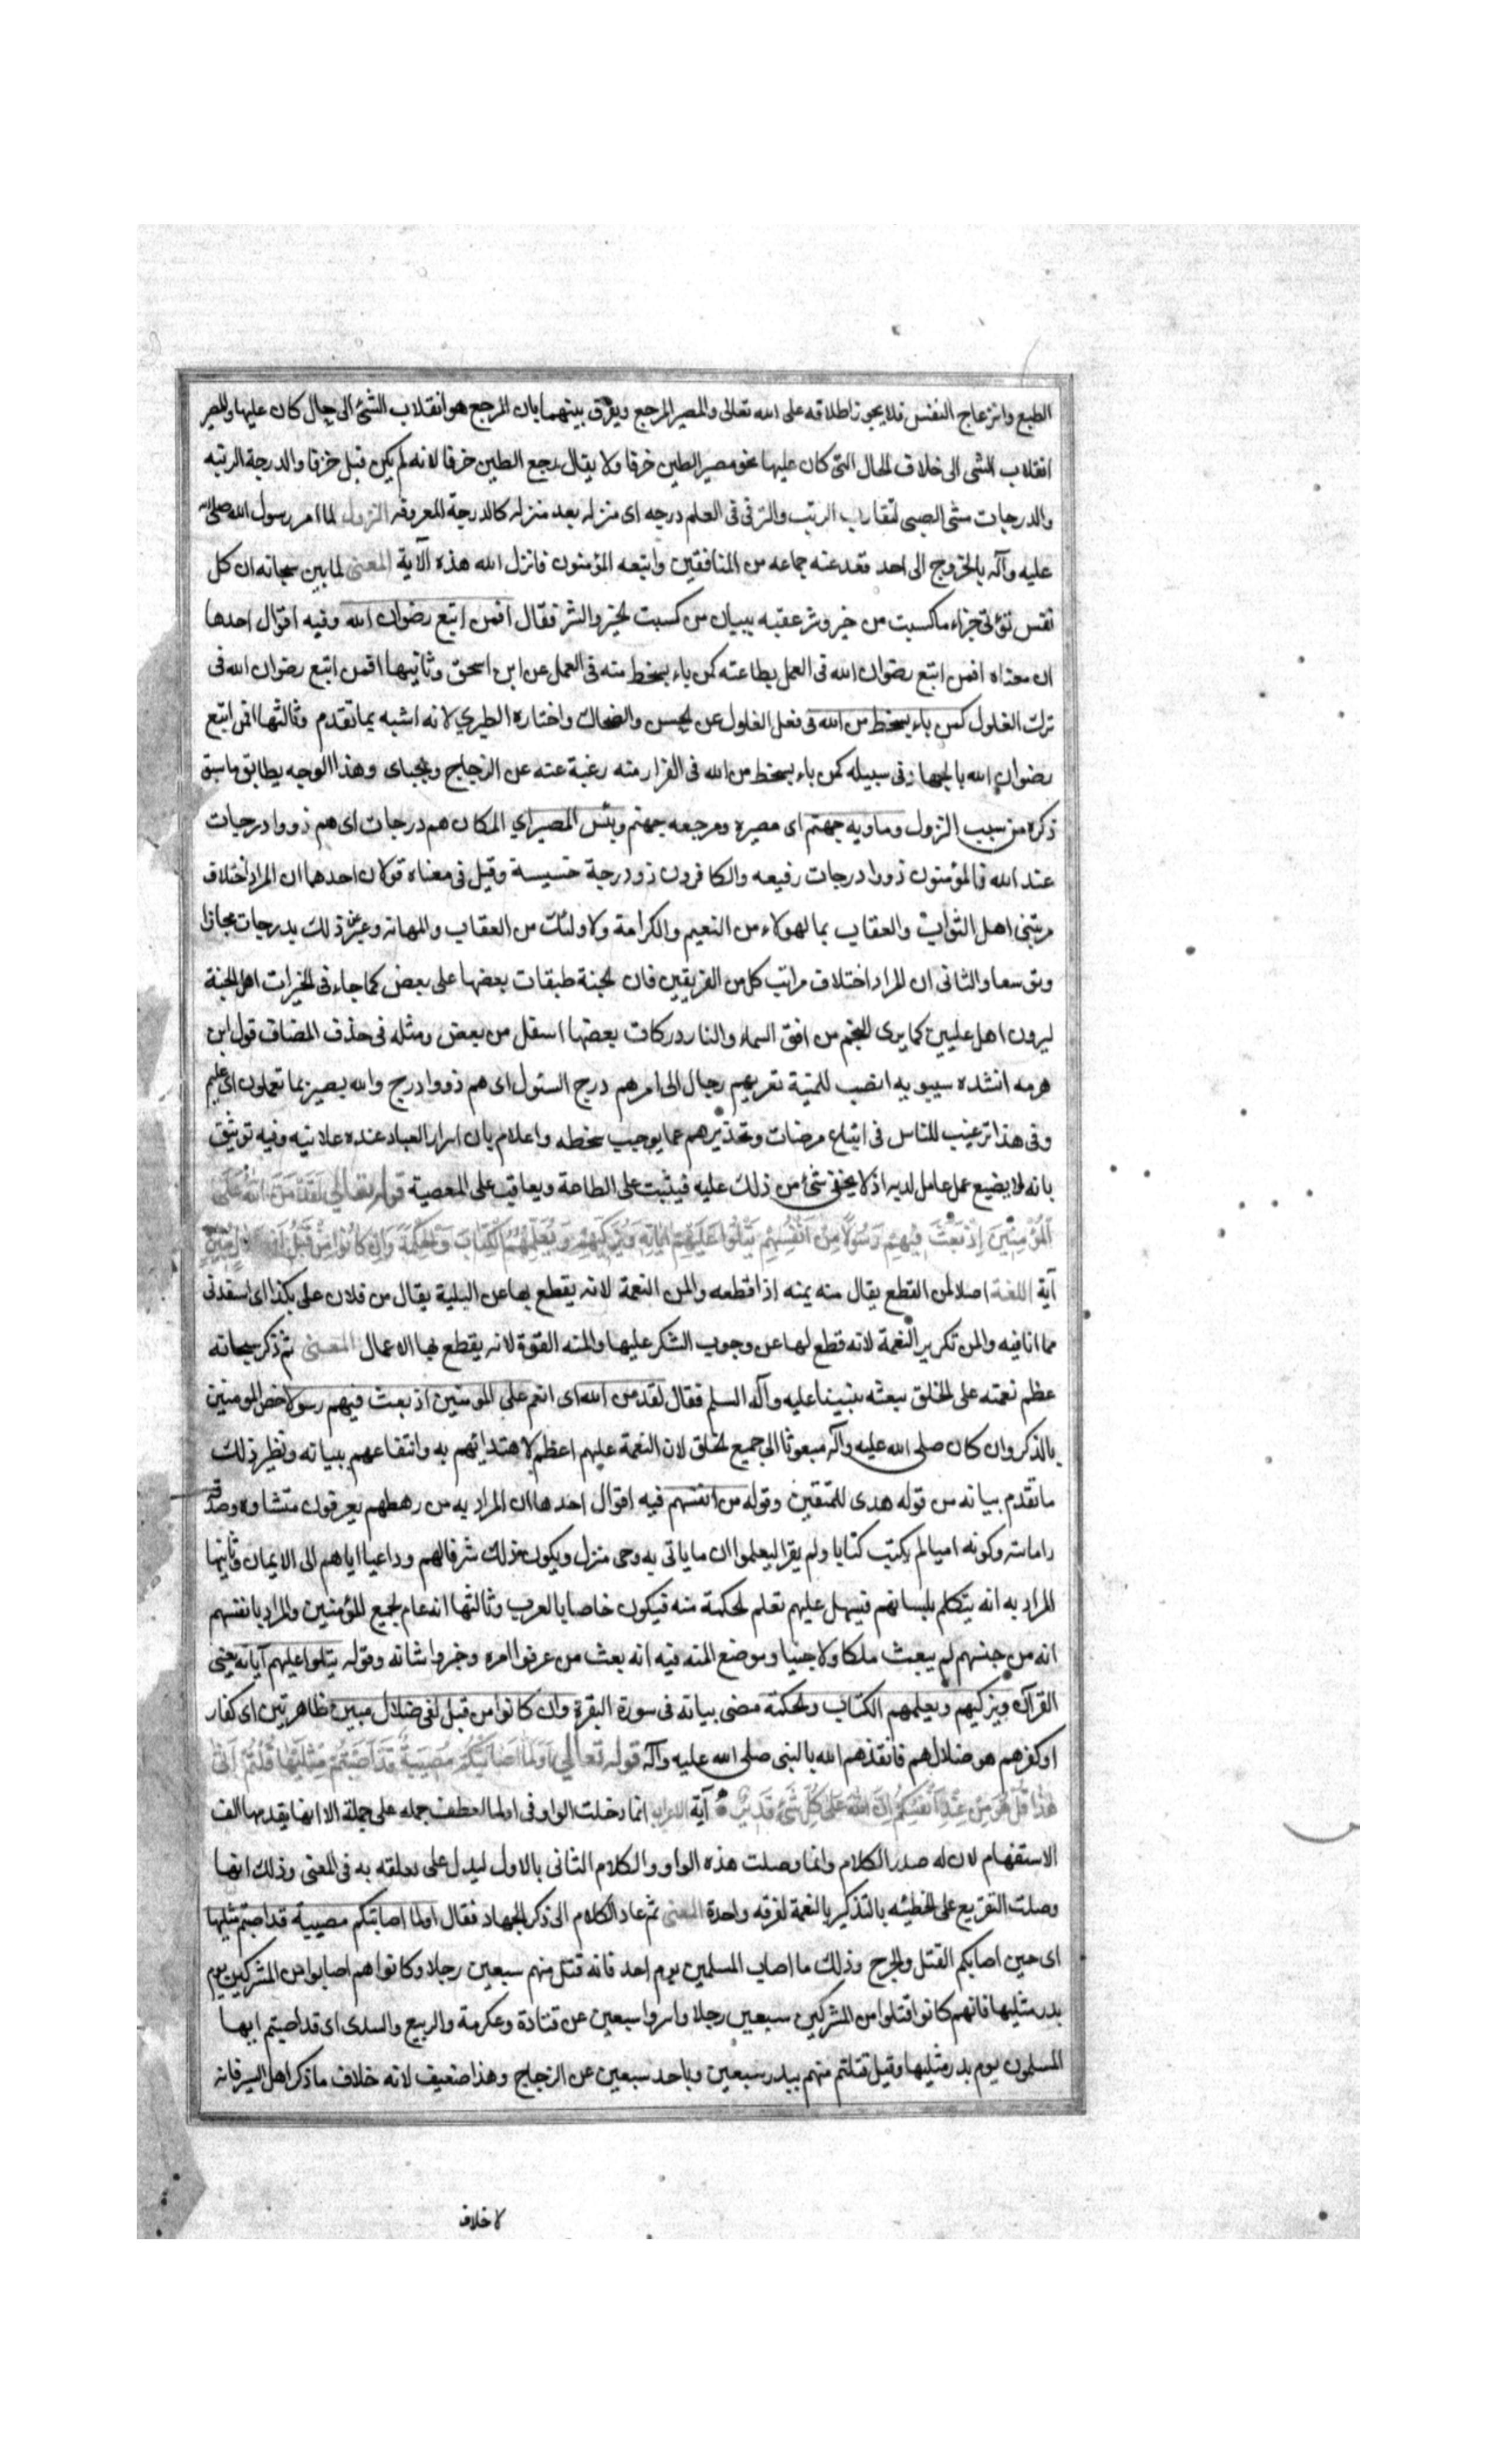 الطبع وانزعاج النفس فلا يجوز اطلاقه على الله تعالى والمصير المرجع ويفرق بينهما بان المرجع هو انقلاب الشئ الى حال كان عليها والمصير
انقلاب الشى الى خلاف الحال التى كان عليها نحو مصير الطين خزفا ولا يقال رجع الطين خزفا لانه لم يكن قبل خزفا والدرجة الرتبه
والدرجات مشى الصبى لتقارب الرتب والترقى فى العلم درجه اى منزله بعد منزله كالدرجة المعروفه النزول لما امر رسول الله صلى الله
عليه وآله بالخروج الى احد قعد عنه جماعه من المنافقين واتبعه المؤمنون فانزل الله هذه الآية المعنى لما بين سبحانه ان كل
نفس توفى جزاء ما كسبت من خير وشر عقبه ببيان من كسبت الخير والشر فقال افمن اتبع رضوان الله وفيه اقوال احدها
ان معناه افمن اتبع رضوان الله فى العمل بطاعته كمن باء بسخط منه فى العمل عن ابن اسحق وثانيها افمن اتبع رضوان الله فى
ترك الغلول كمن باء بسخط من الله فى فعل الغلول عن الحسن والضحاك واختاره الطبري لانه اشبه بما تقدم وثالثها افمن اتبع
رضوان الله بالجهاد فى سبيله كمن باء بسخط من الله فى الفرار منه رغبة عنه عن الزجاج والجبائى وهذا الوجه يطابق ما سبق
ذكره من سبب النزول وماويه جهنم اى مصيره ومرجعه جهنم وبئس المصير اي المكان هم درجات اى هم ذووا درجات
عند الله فالمؤمنون ذووا درجات رفيعه والكافرون ذو درجة خسيسة وقيل فى معناه قولان احدهما ان المراد اختلاف
مرتبتى اهل الثواب والعقاب بما لهولاء من النعيم والكرامة ولاولئك من العقاب والمهانه وعبر عن ذلك بدرجات مجازا
وتوسعا والثانى ان المراد اختلاف مراتب كل من الفريقين فان الجنة طبقات بعضها على بعض كما جاء فى الخبر ان اهل الجنة
ليرون اهل عليين كما يرى النجم من افق السماء والنار دركات بعضها اسفل من بعض ومثله فى حذف المضاف قول ابن
هرمه انشده سيبويه انصب للمنية تعريهم رجال الى امرهم درج السئول اى هم ذووا درج والله بصير بما تعملون اى عليم
وفى هذا ترغيب للناس فى اتباع مرضات وتحذيرهم عما يوجب سخطه واعلام بان اسرار العباد عنده علانيه وفيه توثيق
بانه لا يضيع عمل عامل لديه اذ لا يخفى شئ من ذلك عليه فيثيب على الطاعة ويعاقب على المعصية قوله تعالى لَقَدْ مَنَّ اللهُ عَلَى
الْمُؤْمِنِينَ إِذْ بَعَثَ فِيهِمْ رَسُولًا مِنْ أَنْفُسِهِمْ يَتْلُوا عَلَيْهِمْ آيَاتِهِ وَيُزَكِّيهِمْ وَيُعَلِّمُهُمُ الْكِتَابَ وَالْحِكْمَةَ وَإِنْ كَانُوا مِنْ قَبْلُ لَفِي ضَلَالٍ مُبِينٍ
آية اللغة اصل المن القطع يقال منه يمنه اذا قطعه والمن النعمة لانه يقطع بها عن البلية يقال من فلان على بكذا اى استنقذنى
مما انا فيه والمن تكرير النعمة لانه قطع لها عن وجوب الشكر عليها والمنه القوة لانه يقطع بها الاعمال المعنى ثم ذكر سبحانه
عظم نعمته على الخلق ببعثه نبينا عليه وآله السلم فقال لقد من الله اى انعم على المومنين اذ بعث فيهم رسولا خص المومنين
بالذكر وان كان صلى الله عليه وآله مبعوثا الى جميع الخلق لان النعمة عليهم اعظم لاهتدائهم به وانتفاعهم ببيانه ونظير ذلك
ما تقدم بيانه من قوله هدى للمتقين وقوله من انفسهم فيه اقوال احدها ان المراد به من رهطهم يعرفون منشاه وصدقه
وامانته وكونه اميا لم يكتب كتابا ولم يقرا ليعلموا ان ما ياتى به وحى منزل ويكون ذلك شرفا لهم وداعيا اياهم الى الايمان وثانيها
المراد به انه يتكلم بلسانهم فيسهل عليهم تعلم الحكمة منه فيكون خاصا بالعرب وثالثها انه عام لجميع المؤمنين والمراد بانفسهم
انه من جنسهم لم يبعث ملكا ولا جنيا وموضع المنه فيه انه بعث من عرفوا امره وخبروا شانه وقوله يتلوا عليهم آياته يعنى
القرآن ويزكيهم ويعلمهم الكتاب والحكمة مضى بيانه فى سورة البقرة وان كانوا من قبل لفى ضلال مبين ظاهر بين اى كفار
او كفرهم هو ضلالهم فانقذهم الله بالنبى صلى الله عليه وآله قوله تعالي أَوَلَمَّا أَصَابَتْكُمْ مُصِيبَةٌ قَدْ أَصَبْتُمْ مِثْلَيْهَا قُلْتُمْ أَنَّى
هَذَا قُلْ هُوَ مِنْ عِنْدِ أَنْفُسِكُمْ إِنَّ اللهَ عَلَى كُلِّ شَيْءٍ قَدِيرٌ آية الاعراب انما دخلت الواو فى اولما لعطف جمله على جملة الا انها يقدمها الف
الاستفهام لان له صدر الكلام وانما وصلت هذه الواو والكلام الثانى بالاول ليدل على تعلقه به فى المعنى وذلك انها
وصلت التقريع على الخطيئه بالتذكير بالنعمة لفرقه واحدة المعنى ثم عاد الكلام الى ذكر الجهاد فقال اولما اصابتكم مصيبة قد اصبتم مثليها
اى حين اصابكم القتل والجرح وذلك ما اصاب المسلمين يوم احد فانه قتل منهم سبعين رجلا وكانوا هم اصابوا من المشركين يوم
بدر مثليها فانهم كانوا قتلوا من المشركين سبعين رجلا واسروا سبعين عن قتادة وعكرمة والربيع والسدى اى قد اصبتم ايها
المسلمون يوم بدر مثليها وقيل قتلتم منهم ببدر سبعين وباحد سبعين عن الزجاج وهذا ضعيف لانه خلاف ما ذكر اهل السير فانه
لا خلاف